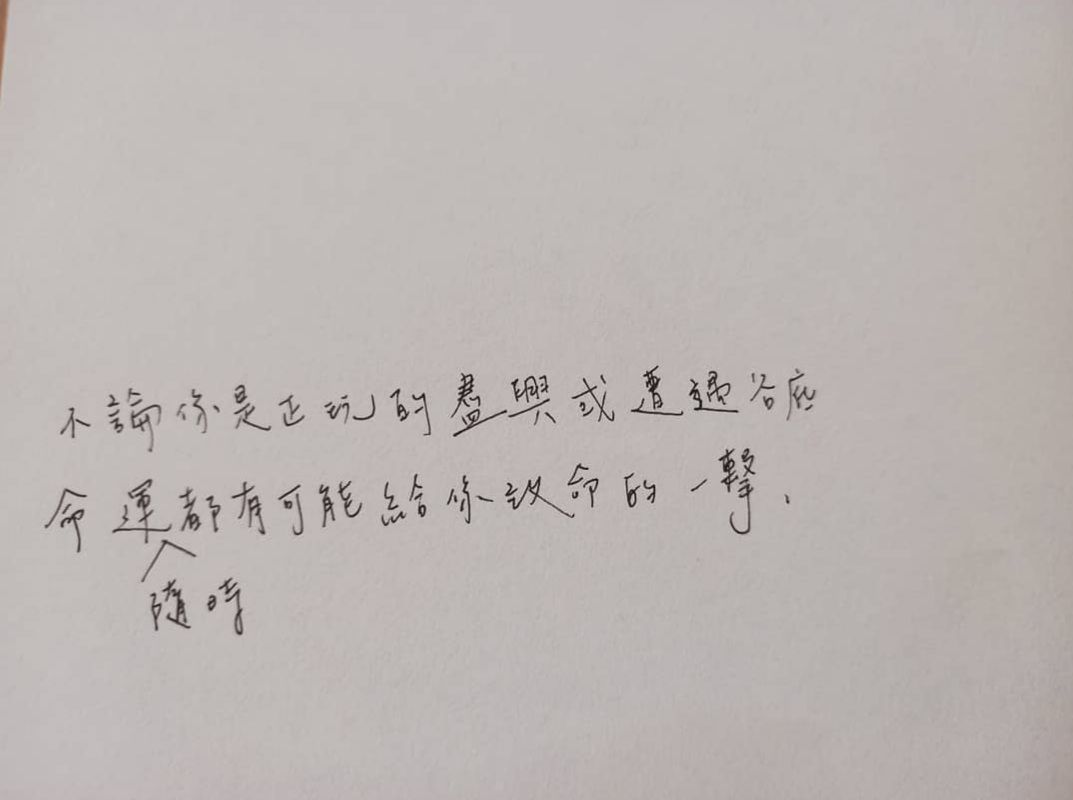 不論你是正玩的盡興或遭遇谷底
命運都有可能給你致命的一擊.
隨時